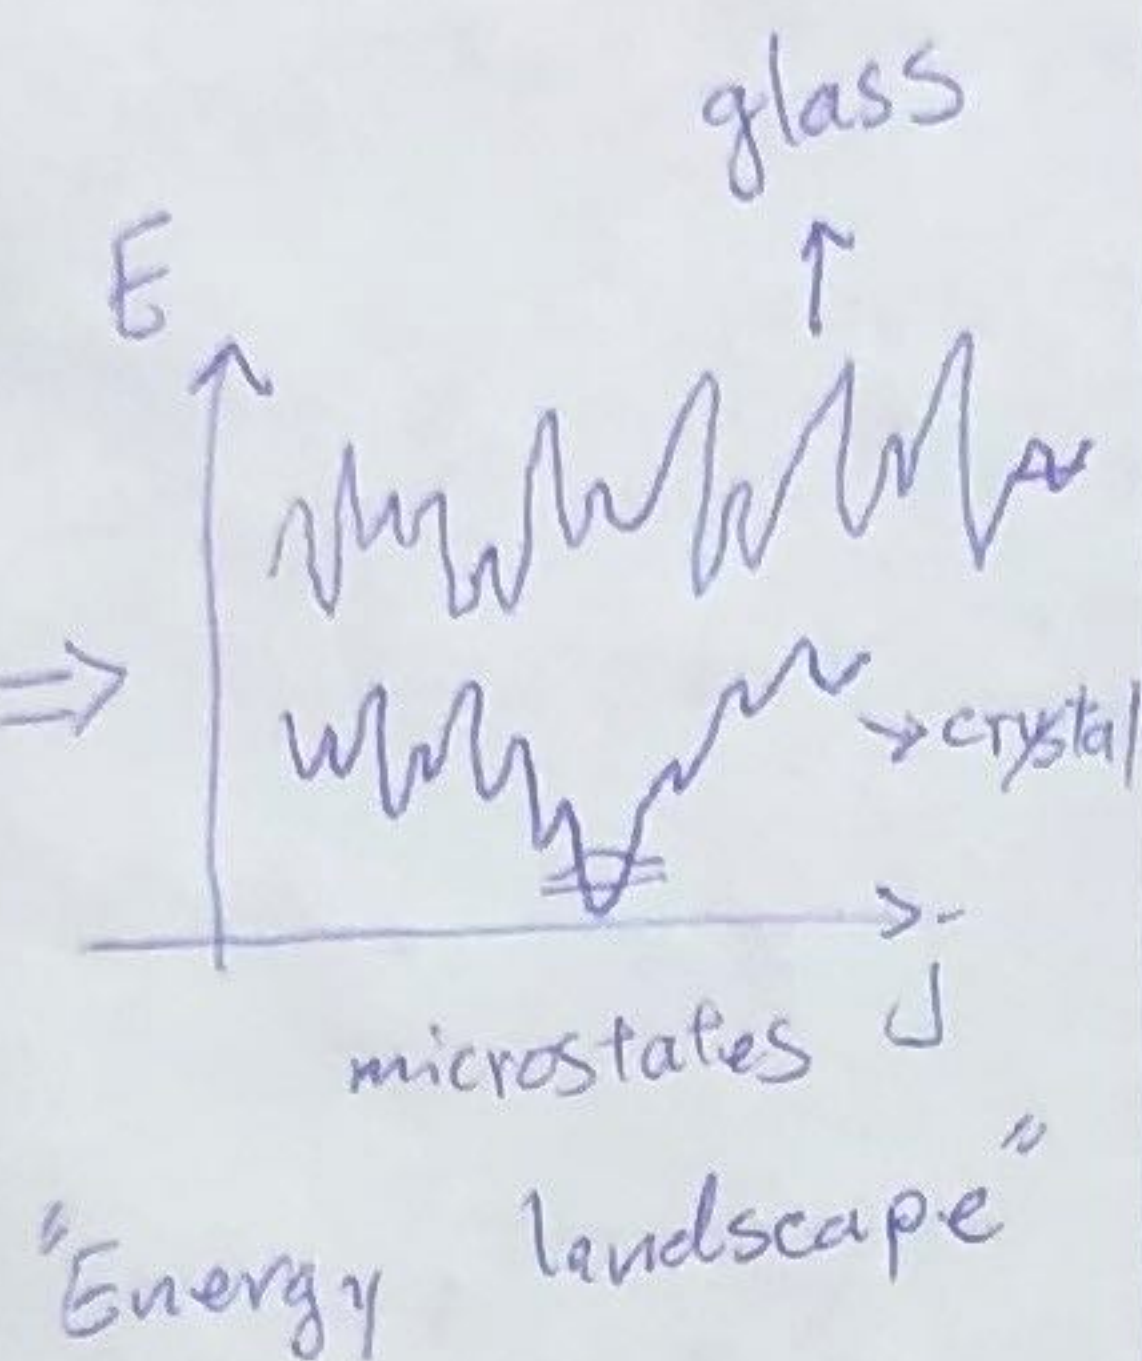 glass
E
⇒
→ crystal
microstates J
"Energy landscape"